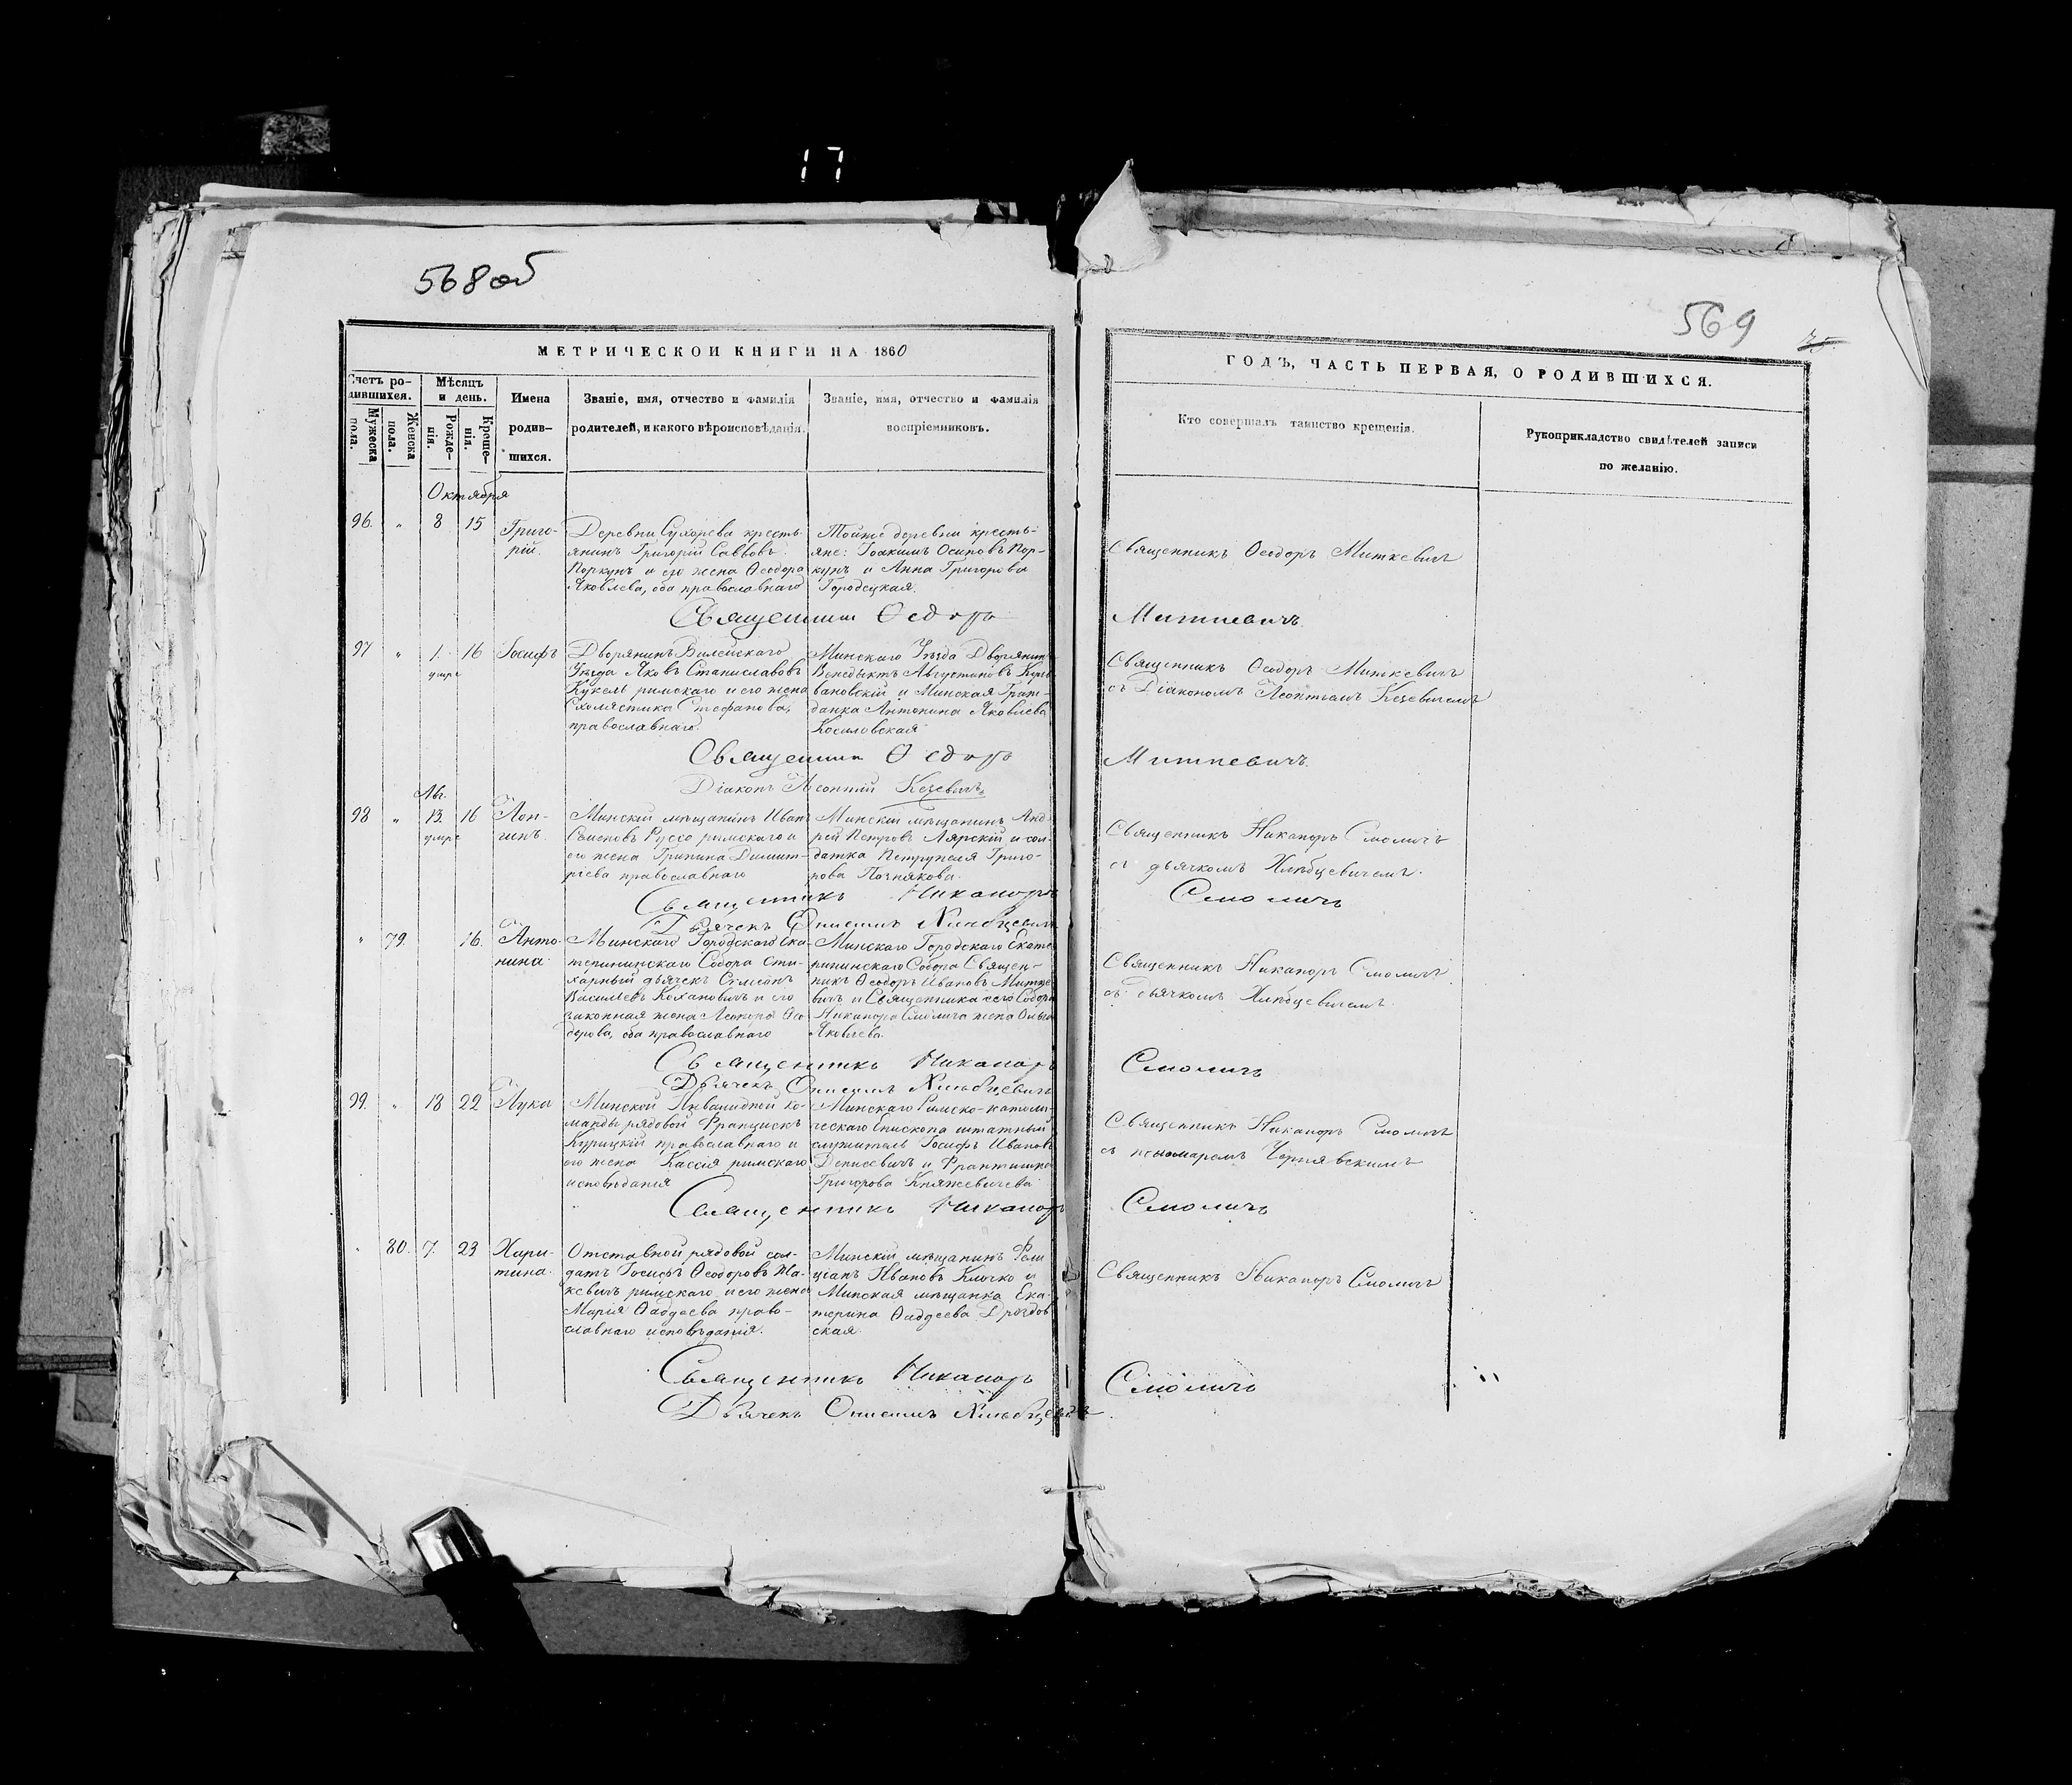 17
568 об
569
МЕТРИЧЕСКОЙ КНИГИ НА 1860
ГОДЪ, ЧАСТЬ ПЕРВАЯ, О РОДИВШИХСЯ.
Счетъ ро-
дившихся.
Мужеска пола.
Женска пола.
Мѣсяцъ
и день.
Рожде-
нія.
Креще-
нія.
Имена
родив-
шихся.
Званіе, имя, отчество и фамилія
родителей, и какого вѣроисповѣданія.
Званіе, имя, отчество и фамилія
воспріемниковъ.
Кто совершалъ таинство крещенія.
Рукоприкладство свидѣтелей записи
по желанію.
Октября
96. " 8 15 Григо-
рій.
Деревни Сухорева кресть-
янинъ Григорій Саввовъ
Поркунъ и его жена Ѳеодора
Яковлева, оба православнаго
Тойже деревни кресть-
яне: Іоакимъ Осиповъ Пор-
кунъ и Анна Григорова
Городецкая.
Священникъ Ѳеодоръ Миткевичъ
Священникъ Ѳеодоръ Миткевичъ
97 " 1 16 Іосифъ
Дворянинъ Вилейскаго
Уѣзда Яковъ Станиславовъ
Кукель римскаго и его жена
Схолястика Стефанова,
православнаго
Минскаго Уѣзда Дворянинъ
Венедыктъ Августиновъ
и Минская Граж-
данка Антонина Яковлева
Косиловская
Священникъ Ѳеодоръ Миткевичъ
съ Діакономъ Леонтіемъ Кезевичемъ
Священникъ Ѳеодоръ Миткевичъ
Діаконъ Леонтій Кезевичъ
Ав.
98 " 13 16 Лон-
гинъ.
Минскій мѣщанинъ Иванъ
Семеновъ Руссо римскаго и
его жена Грипина Димит-
ріева православнаго
Минскій мѣщанинъ Анд-
рей Петровъ Лярскій и сол-
датка Петрунеля Григо-
рова Познякова.
Священникъ Никаноръ Смоличъ
съ дьячкомъ Хлѣбцевичемъ.
Священникъ Никаноръ Смоличъ
Дьячекъ Онисимъ Хлѣбцевичъ
" 79. 16. Анто-
нина.
Минскаго Городскаго Ека-
терининскаго Собора Сти-
харный дьячекъ Симеонъ
Васильевъ Кохановичъ и его
законная жена Леонора Ѳео-
дорова, оба православнаго
Минскаго Городскаго Екате-
рининскаго Собора Священ-
никъ Ѳеодоръ Ивановъ Митке-
вичъ и Священника сего Собора
Никанора Смолича жена Ольга
Яковлева.
Священникъ Никаноръ Смоличъ
съ дьячкомъ Хлѣбцевичемъ.
Священникъ Никаноръ Смоличъ
Дьячекъ Онисимъ Хлѣбцевичъ
99. " 18 22 Лука
Минской Инвалидной ко-
манды рядовой Францискъ
Курицкій православнаго и
его жена Кассія римскаго
исповѣданія
Минскаго Римско-католи-
ческаго Епископа штатный
служитель Іосифъ Ивановъ
Денисевичъ и Франтишка
Григорова Княжевичева
Священникъ Никаноръ Смоличъ
съ пономаремъ Чернявскимъ
Священникъ Никаноръ Смоличъ
80. 7. 23 Хари-
тина.
Отставной рядовой сол-
датъ Іосифъ Ѳеодоровъ
римскаго и его жена
Марія Ѳаддеева право-
славнаго исповѣданія.
Минскій мѣщанинъ Фели-
ціанъ Ивановъ Клочко и
Минская мѣщанка Ека-
терина Ѳаддеева Дроздов-
ская.
Священникъ Никаноръ Смоличъ
Священникъ Никаноръ Смоличъ
Дьячекъ Онисимъ Хлѣбцевичъ